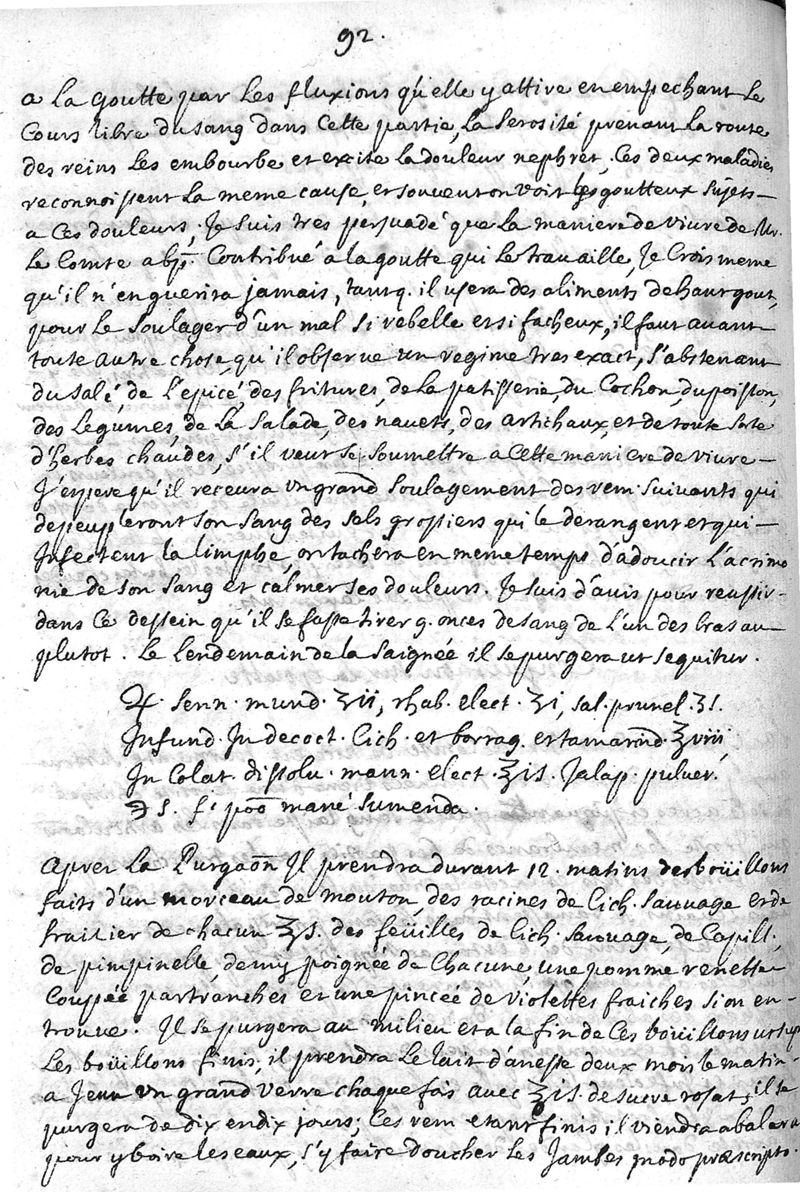 92.
a La goutte par Les fluxions qu'elle y attire en empechant Le
Cours libre du sang dans Cette partie, La Serosité prenant La route
des reins Les embourbe et excite La douleur nephret., Ces deux maladies
reconnoissent La meme cause, et souvent on voit les goutteux Sujets
a Ces douleurs, Je suis tres persuadé que La maniere de vivre de Mr.
Le Comte a bp. Contribué a la goutte qui Le travaille, Je Crois meme
qu'il n'en guerira jamais, tantq. il usera des aliments de haut gout,
pour Le Soulager d'un mal si rebelle et si facheux, il faut avant
toute autre chose, qu'il observe un regime tres exact, s'abstenant
du Salé, de L'epicé, des fritures, de la patisserie, du Cochon, du poisson,
des Legumes, de La Salade, des navets, des artichaux, et de toute sorte
d'herbes chaudes, s'il veut se soumettre a Cette maniere de vivre
J'espere qu'il recevra un grand Soulagement des rem. Suivants qui
depeupleront Son Sang des Sels grossiers qui le derangent et qui
Infectent la limphe, on tachera en meme temps d'adoucir L'acrimo
nie de son Sang et calmer ses douleurs. Je suis d'avis pour reussir
dans Ce dessein qu'il se fasse tirer 9. onces de sang de L'un des bras au
plutot. Le Lendemain de la Saignée il se purgera ut sequitur.
♃. Senn. mund. ʒii, rhab. elect. ʒi, sal. prunel. ʒs.
Infund. In decoct. Cich. et borrag. et tamarind. ℥viii,
In Colat. dissolv. mann. elect. ℥is. Jalap. pulver.
℈s. f. poõ manè Sumenda.
Apres La Purgaõn Il prendra durant 12. matins des boüillons
faits d'un morceau de mouton, des racines de Cich. Sauvage et de
fraisier de chacun ℥s. des feüilles de Cich. Sauvage, de Capill.
de pimpinelle, demy poignée de Chacune, une pomme renette
Coupée par tranches et une pincée de violettes fraiches si on en
trouve. Il se purgera au milieu et a la fin de Ces boüillons ut sup
Les boüillons finis, il prendra Le lait d'anesse deux mois le matin
a Jeun un grand verre chaque fois avec ʒis. de sucre rosat, il se
purgera de dix en dix jours; Ces rem etant finis il viendra a balaru
pour y boire les eaux, s'y faire doucher Les Jambes modo præscripto.